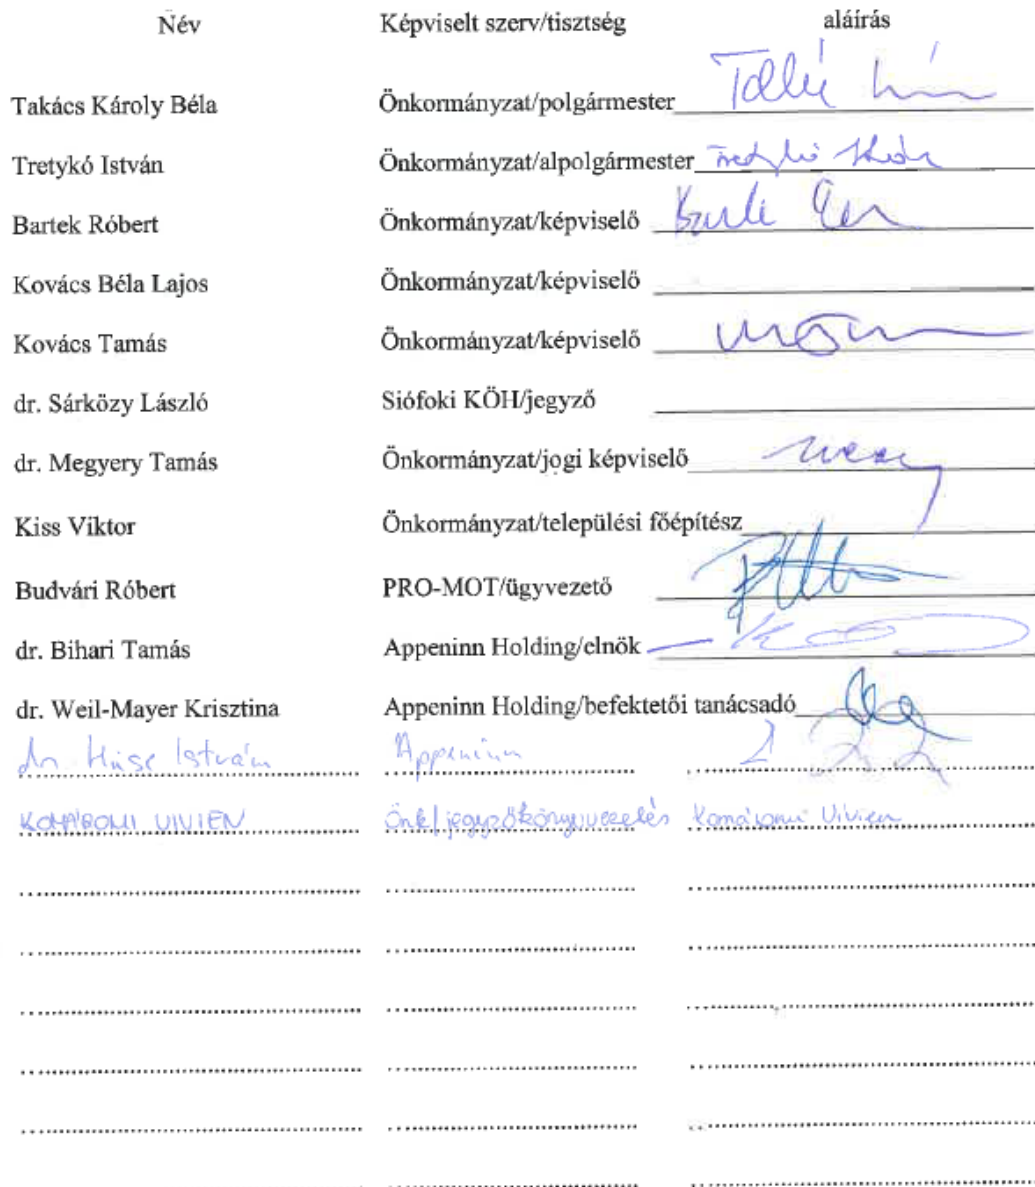 Név Képviselt szerv/tisztség aláírás
Takács Károly Béla Önkormányzat/polgármester
Tretykó István Önkormányzat/alpolgármester
Bartek Róbert Önkormányzat/képviselő
Kovács Béla Lajos Önkormányzat/képviselő
Kovács Tamás Önkormányzat/képviselő
dr. Sárközy László Siófoki KÖH/jegyző
dr. Megyery Tamás Önkormányzat/jogi képviselő
Kiss Viktor Önkormányzat/települési főépítész
Budvári Róbert PRO-MOT/ügyvezető
dr. Bihari Tamás Appeninn Holding/elnök
dr. Weil-Mayer Krisztina Appeninn Holding/befektetői tanácsadó
dr. István Appeninn
KOMÁROMI VIVIEN Önk/jegyzőkönyvvezetés Komáromi Vivien